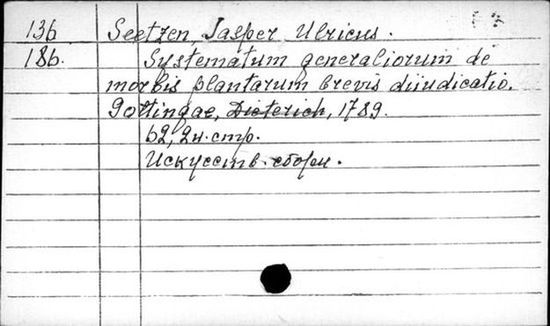 136 Seetzen, Jasper Ulricus.
186. Systematum generaliorum de
morbis plantarum brevis diiudicatio.
Gottingae, Dieterich, 1789.
62, 2 н. стр.
Искусств. сборн.